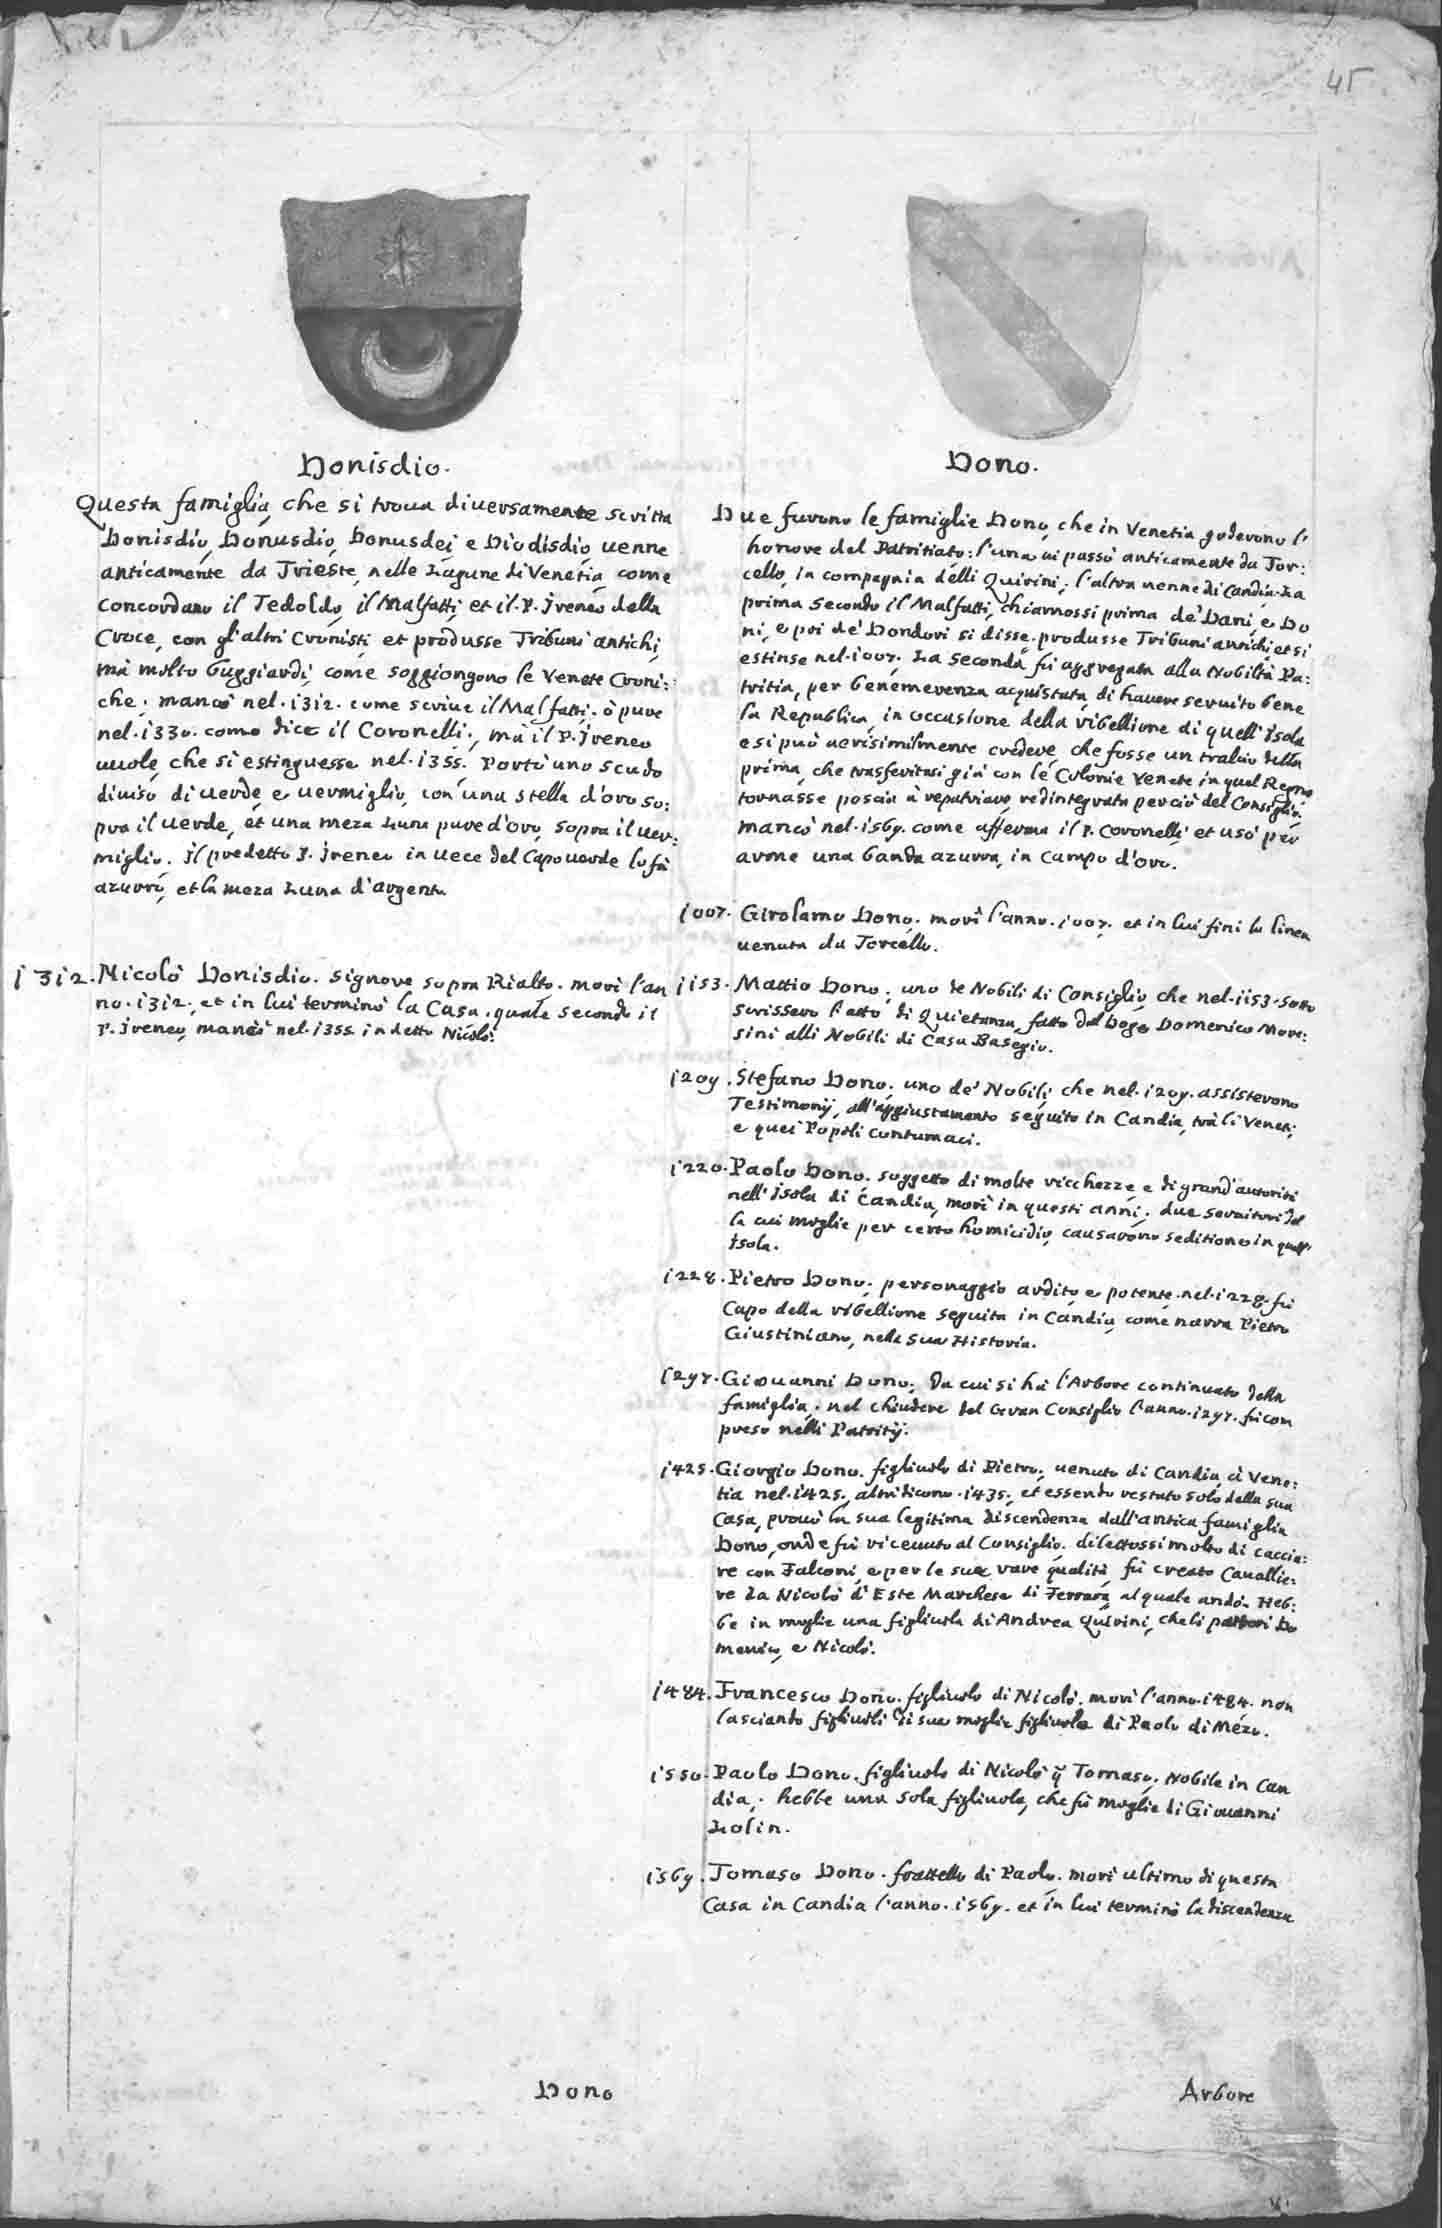 45
Donisdio.
Questa famiglia, che si troua diuersamente scritta
Donisdio, Donusdio, Donusdei e Diodisdio, uenne
anticamente da Trieste, nelle Lagune di Venetia, come
concordano il Tedoldo, il Malfatti, et il P. Ireneo della
Croce, con gl'altri Cronisti et produsse Tribuni antichi,
mà molto buggiardi, come soggiongono le Venete Croni:
che; mancò nel 1312. come scriue il Malfatti; ò pure
nel 1330. como dice il Coronelli; mà il P. Ireneo
uuole, che si estinguesse nel 1355. Portò uno scudo
diuiso di uerde, e uermiglio, con una stella d'oro so:
pra il uerde, et una meza Luna pure d'oro, sopra il uer:
miglio. Il predetto P. Ireneo in uece del Capo uerde lo fà
azurro, et la meza Luna d'argento.
1312. Nicolò Donisdio. Signore sopra Rialto. morì l'an
no. 1312. et in lui terminò la Casa. quale secondo il
P. Ireneo, mancò nel 1355. in detto Nicolò.
Dono
Dono.
Due furono le famiglie Dono, che in Venetia goderono l'
honore del Patritiato: l'una ui passò anticamente da Tor:
cello, in compagnia delli Quirini; l'altra uenne di Candia. La
prima secondo il Malfatti, chiamossi prima de' Dani, e Do
ni, e poi de' Dondori si disse. produsse Tribuni antichi et si
estinse nel 1007. La seconda fù aggregata alla Nobiltà Pa:
tritia, per benemerenza acquistata, di hauere seruito bene
la Republica, in occasione della ribellione di quell' Isola
e si può uerisimilmente credere, che fosse un tralcio della
prima, che trasferitasi già con le Colonie Venete in quel Regno
tornasse poscia à repatriare redintegrata perciò del Consiglio.
mancò nel 1569. come afferma il P. Coronelli, et usò per
arme una banda azurra, in campo d'oro.
1007. Girolamo Dono. morì l'anno. 1007. et in lui finì la linea
uenuta da Torcello.
1153. Mattio Dono; uno de Nobili di Consiglio, che nel 1153. sotto
scrissero l'atto di Quietanza, fatto dal Doge Domenico More:
sini alli Nobili di Casa Basegio.
1209. Stefano Dono; uno de' Nobili, che nel 1209. assisterono
Testimonij, all'aggiustamento seguito in Candia, trà li Veneti,
e quei Popoli contumaci.
1220. Paolo Dono. soggetto di molte ricchezze e di grand'autorità
nell'Isola di Candia, morì in questi anni; due seruitori del
la cui moglie per certo homicidio, causarono seditione in quell'
Isola.
1228. Pietro Dono; personaggio ardito, e potente. nel 1228. fù
Capo della ribellione seguita in Candia, come narra Pietro
Giustiniano, nella sua Historia.
1297. Giouanni Dono; da cui si hà l'Arbore continuato della
famiglia. nel chiudere del Gran Consiglio l'anno. 1297. fù com
preso nelli Patritij.
1425. Giorgio Dono. figliuolo di Pietro; uenuto di Candia à Vene:
tia nel 1425., altri dicono 1435., et essendo restato solo della sua
Casa, prouò la sua legitima discendenza dall'antica famiglia
Dono, onde fù riceuuto al Consiglio. dilettossi molto di caccia:
re con Falconi, e per le sue rare qualità fù creato Caualie:
re da Nicolò d'Este Marchese di Ferrara, al quale andò. Heb:
be in moglie una figliuola di Andrea Quirini, che li partorì Do
menico, e Nicolò.
1484. Francesco Dono. figliuolo di Nicolò. morì l'anno. 1484. non
lasciando figliuoli di sua moglie figliuola di Paolo di Mezo.
1550. Paolo Dono. figliuolo di Nicolò q Tomaso; Nobile in Can
dia; hebbe una sola figliuola, che fù moglie di Giouanni
Lolin.
1569. Tomaso Dono. frattello di Paolo. morì ultimo di questa
Casa in Candia l'anno. 1569. et in lui terminò la discendenza
Arbore